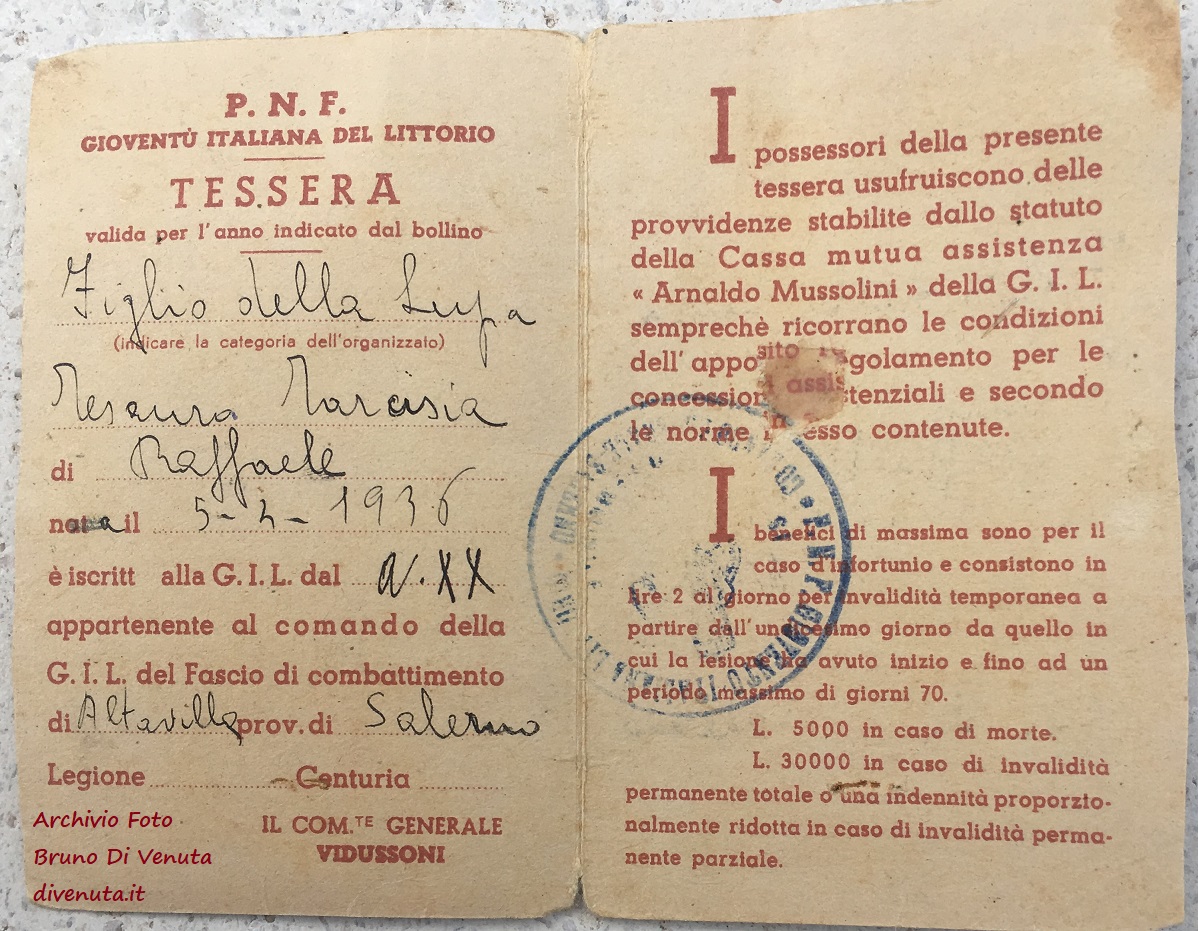 P. N. F.
GIOVENTÙ ITALIANA DEL LITTORIO
TESSERA
valida per l'anno indicato dal bollino
Figlio della Lupa
(indicare la categoria dell'organizzato)
Mesauro Narcisia
di Raffaele
nata il 5-2-1936
è iscritt alla G. I. L. dal a. XX
appartenente al comando della
G. I. L. del Fascio di combattimento
di Altavilla prov. di Salerno
Legione Centuria
IL COM.TE GENERALE
VIDUSSONI
Archivio Foto
Bruno Di Venuta
divenuta.it
I possessori della presente
tessera usufruiscono delle
provvidenze stabilite dallo statuto
della Cassa mutua assistenza
« Arnaldo Mussolini » della G. I. L.
sempreché ricorrano le condizioni
dell'apposito regolamento per le
concessioni assistenziali e secondo
le norme in esso contenute.
I benefici di massima sono per il
caso d'infortunio e consistono in
lire 2 al giorno per invalidità temporanea a
partire dall'undicesimo giorno da quello in
cui la lesione ha avuto inizio e fino ad un
periodo massimo di giorni 70.
L. 5000 in caso di morte.
L. 30000 in caso di invalidità
permanente totale o una indennità proporzio-
nalmente ridotta in caso di invalidità perma-
nente parziale.
P. N. F. GIOVENTÙ ITALIANA DEL